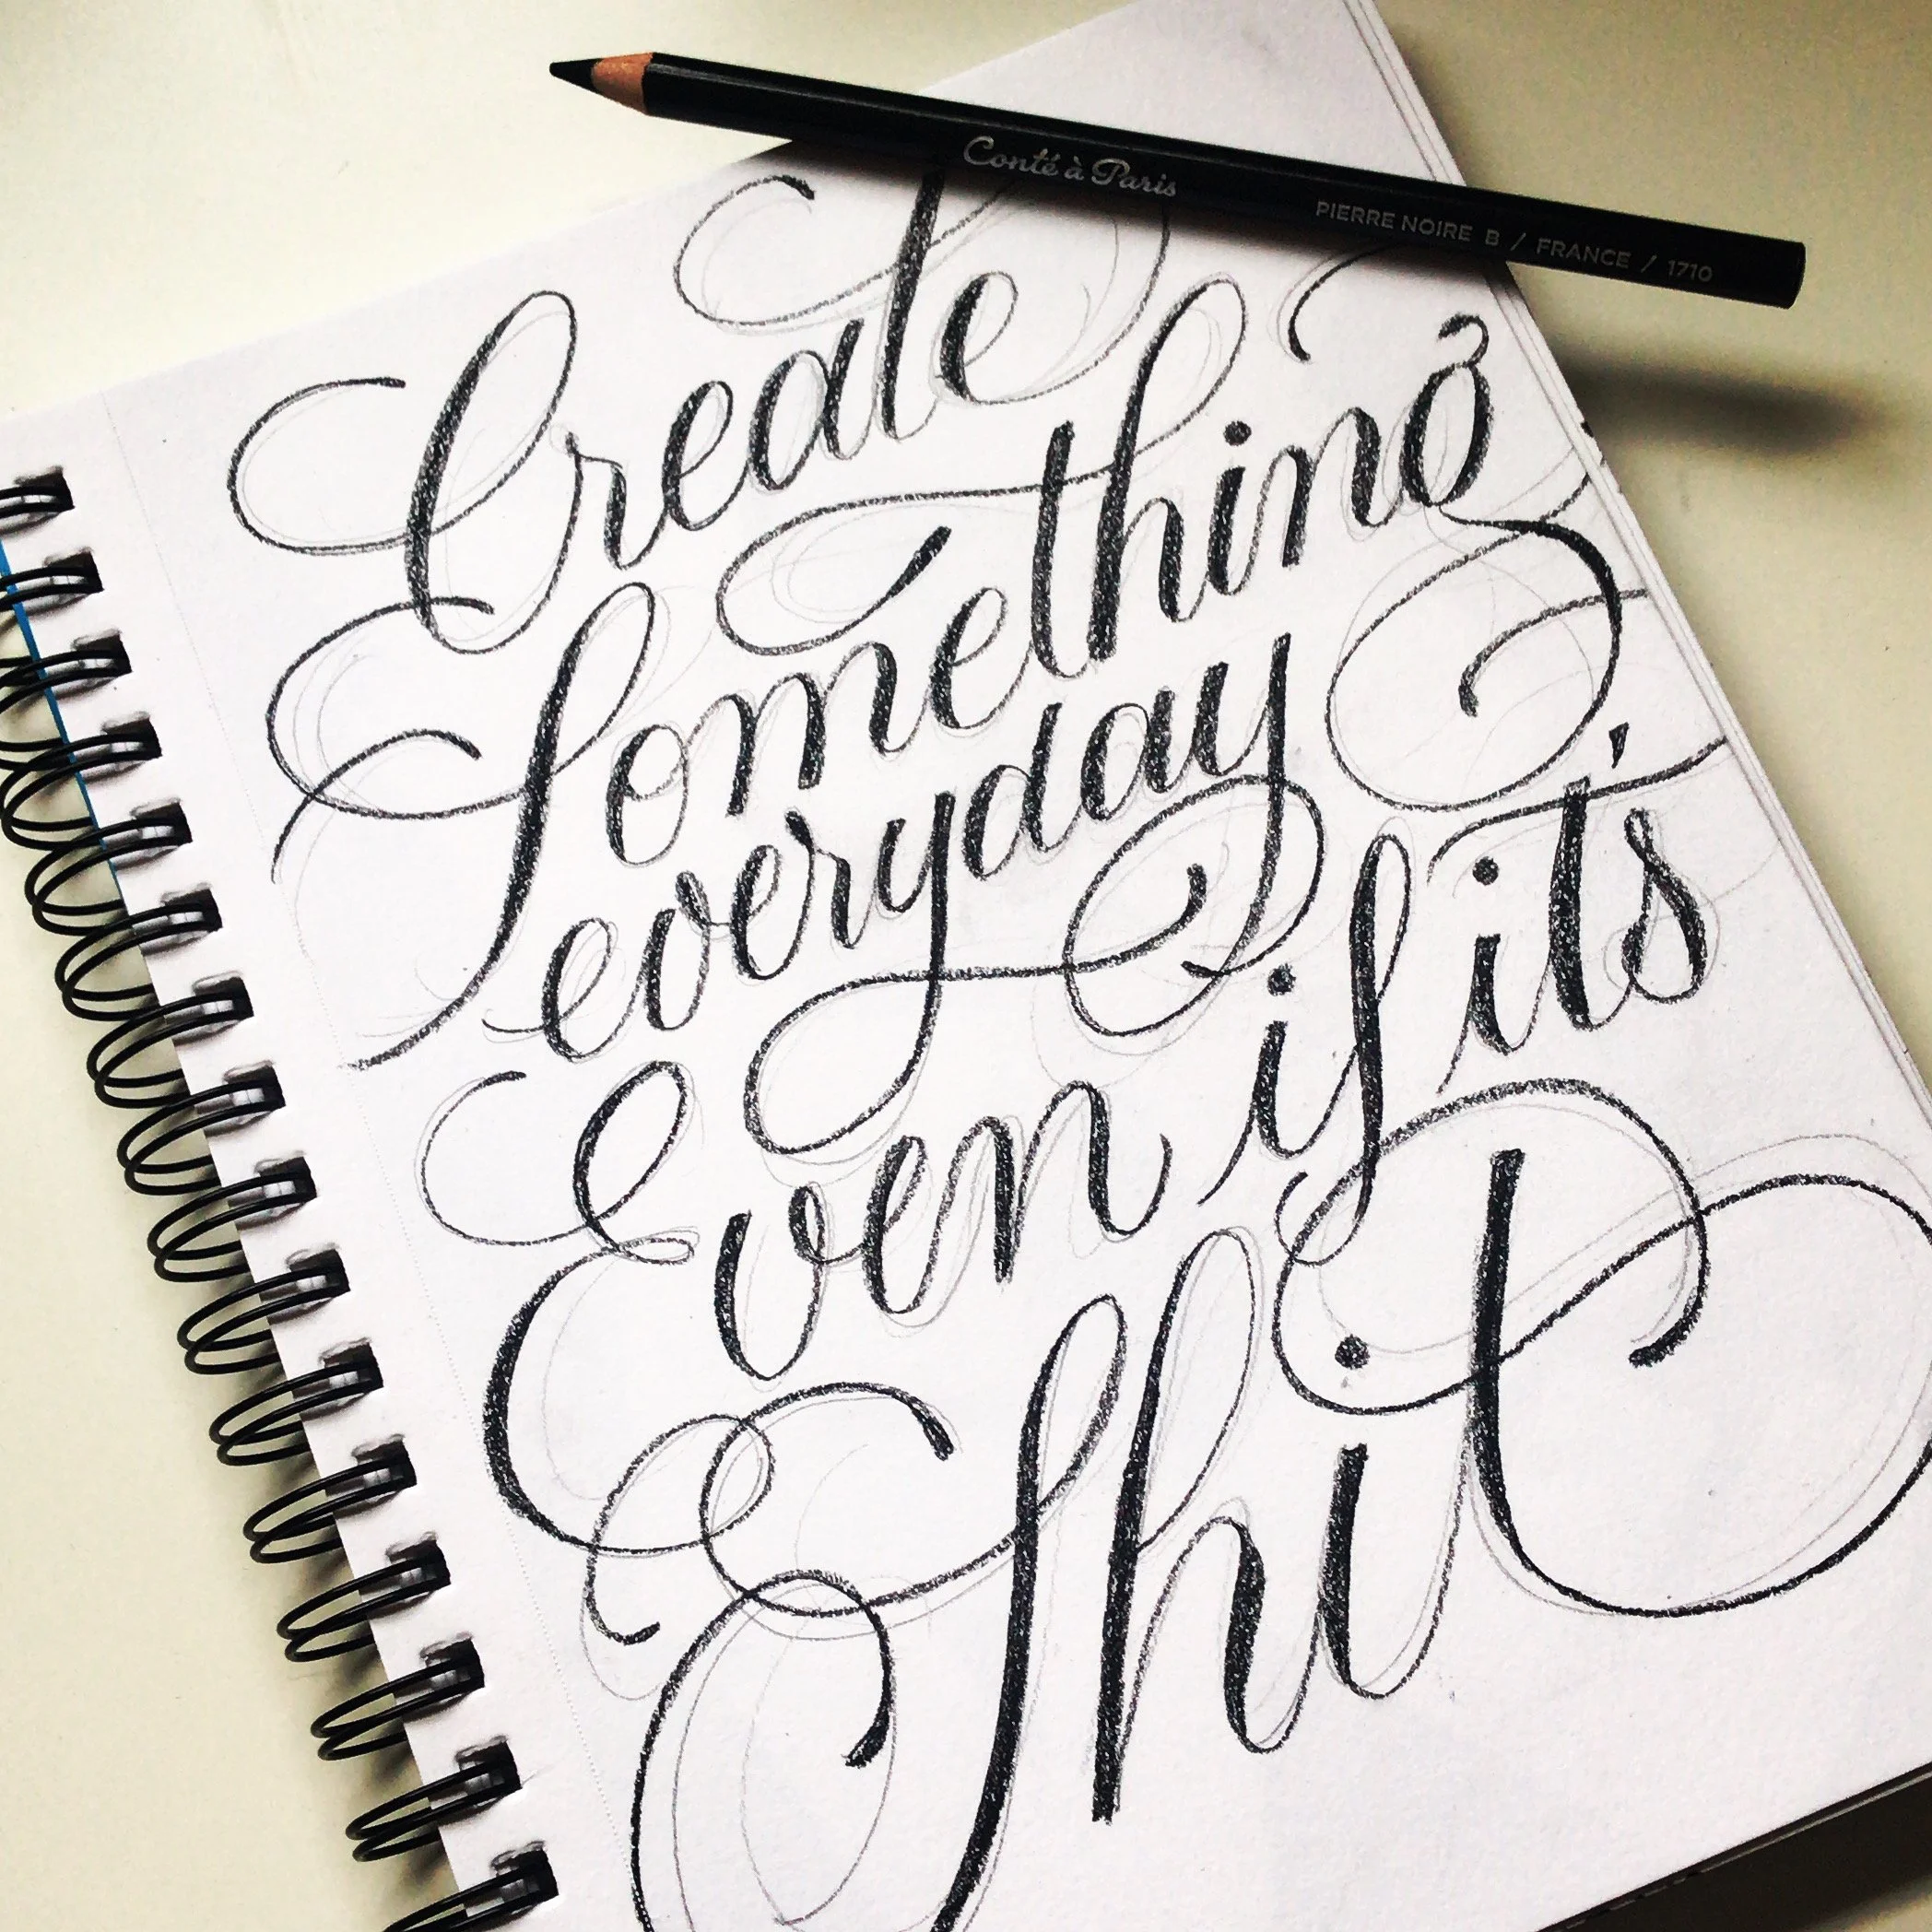 Conté à Paris PIERRE NOIRE B / FRANCE / 1710
Create
Something
everyday
Even if it's
Shit